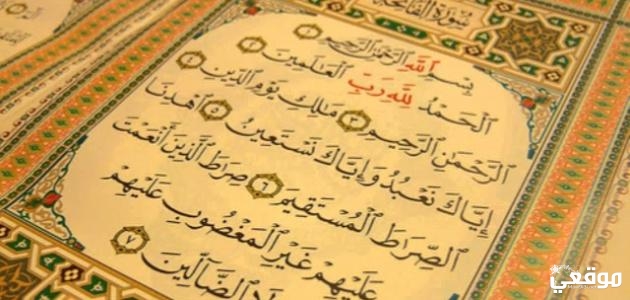 سُورَةُ الفَاتِحَةِ
بِسْمِ ٱللَّهِ ٱلرَّحْمَٰنِ ٱلرَّحِيمِ ١
ٱلْحَمْدُ لِلَّهِ رَبِّ ٱلْعَٰلَمِينَ ٢
ٱلرَّحْمَٰنِ ٱلرَّحِيمِ ٣ مَٰلِكِ يَوْمِ ٱلدِّينِ ٤
إِيَّاكَ نَعْبُدُ وَإِيَّاكَ نَسْتَعِينُ ٥ ٱهْدِنَا
ٱلصِّرَٰطَ ٱلْمُسْتَقِيمَ ٦ صِرَٰطَ ٱلَّذِينَ أَنْعَمْتَ
عَلَيْهِمْ غَيْرِ ٱلْمَغْضُوبِ عَلَيْهِمْ
ٱلضَّآلِّينَ ٧
موقعي